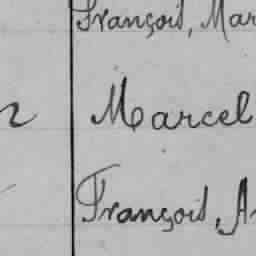 François, Mar
2 Marcel
François, A